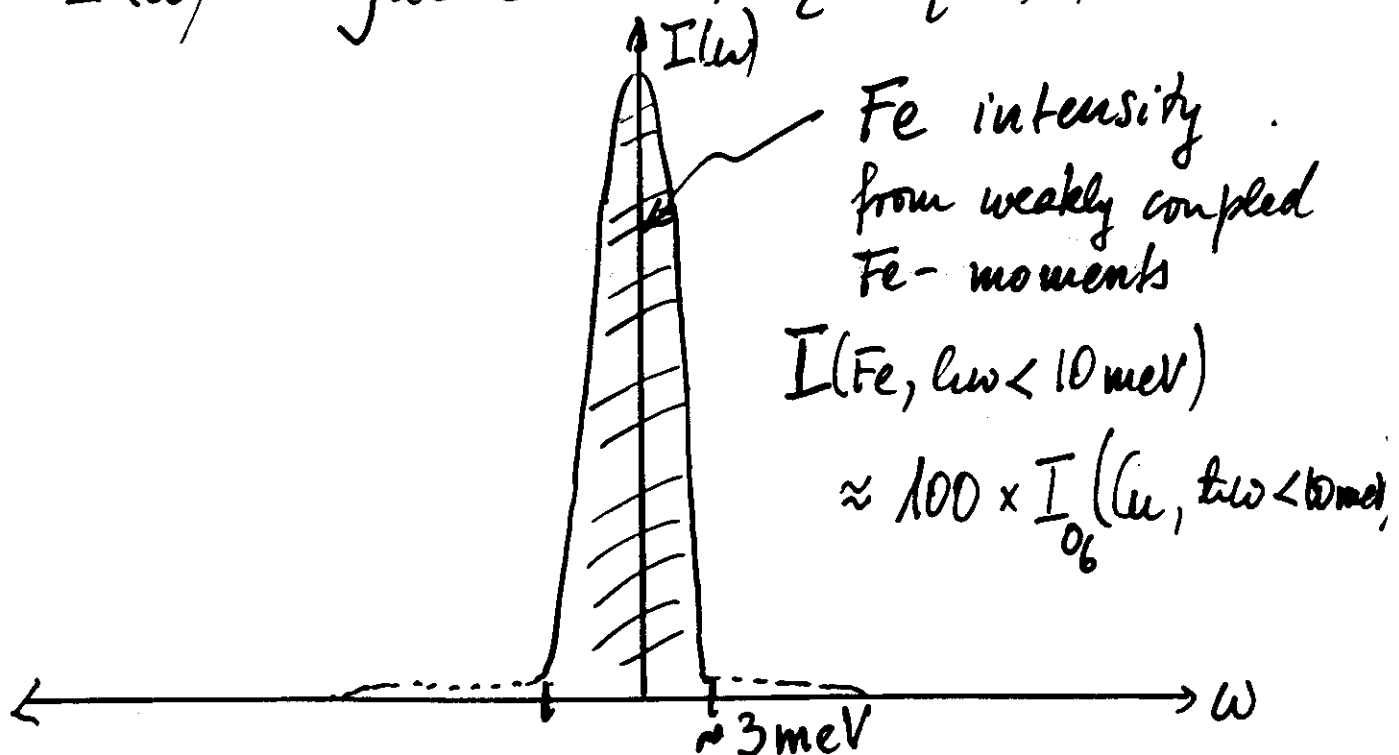 I(ω)
I(ω)
Fe intensity
from weakly coupled
Fe-moments
I(Fe, ħω < 10 meV)
≈ 100 × I_06 (Cu, ħω < 10 meV)
ω
~ 3 meV